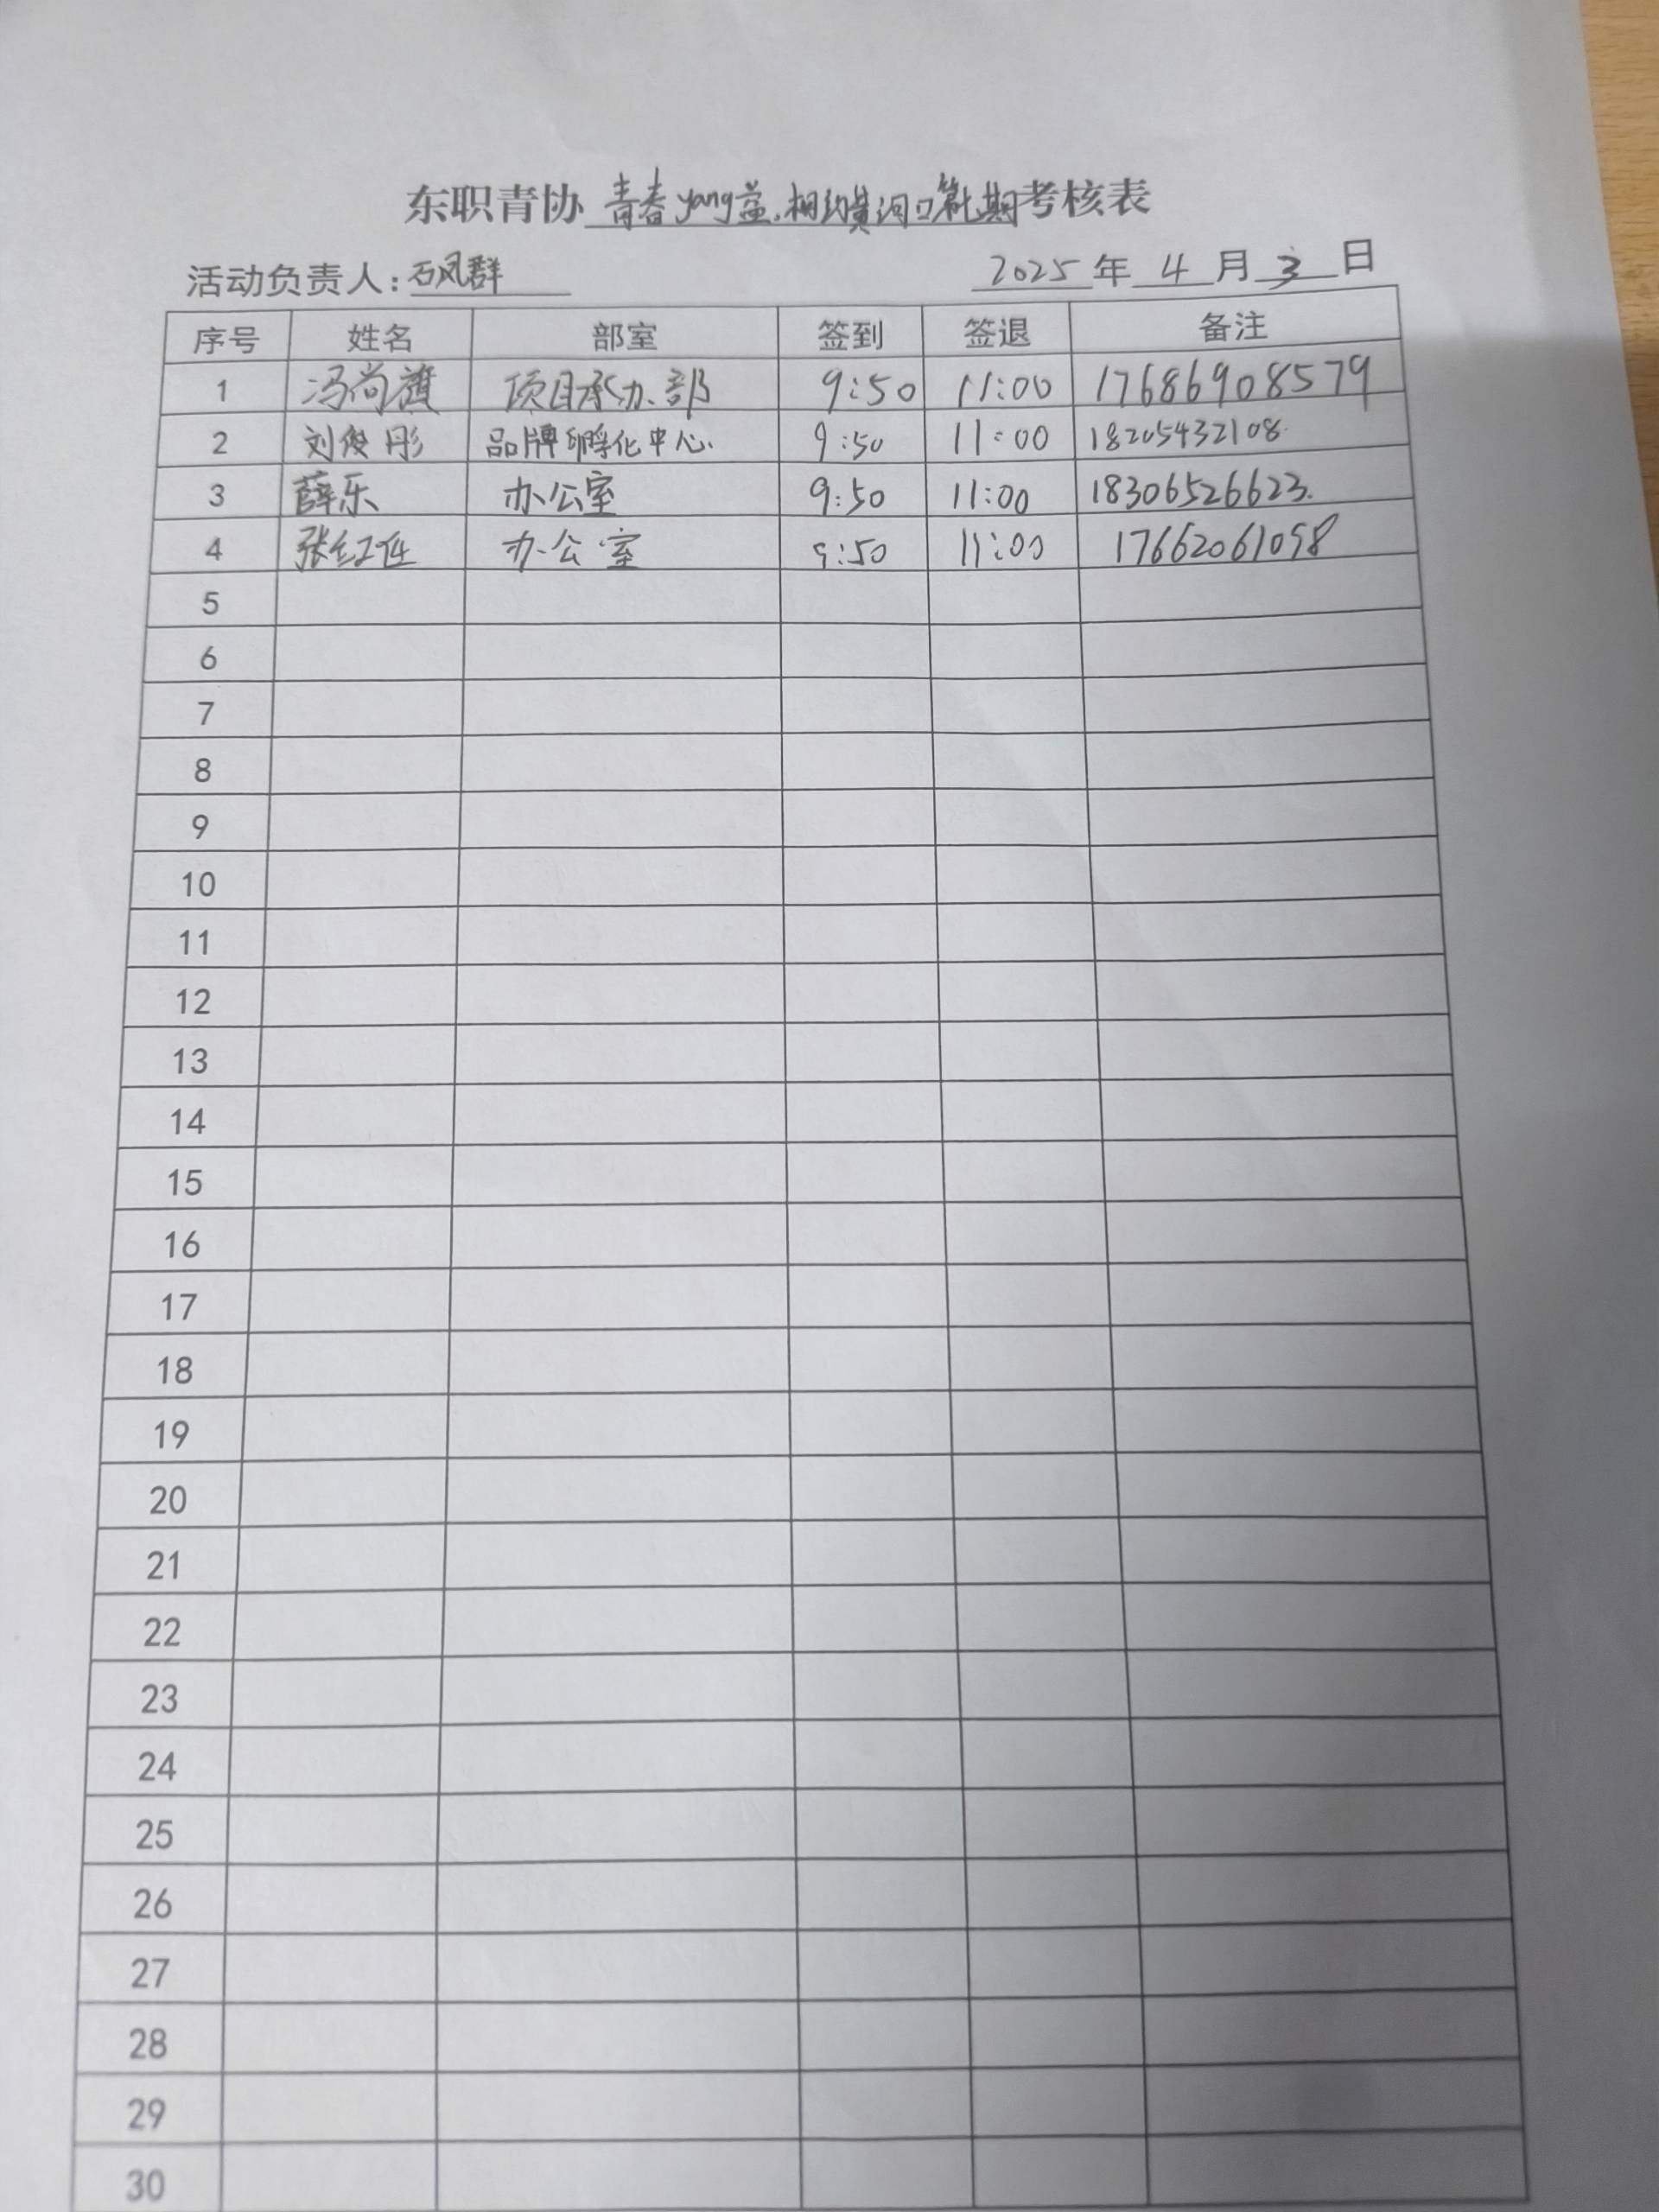 东职青协 青春yang益.相约黄河口第七期考核表
活动负责人:石凤群 2025年4月3日
序号 姓名 部室 签到 签退 备注
1 冯尚旗 项目承办部 9:50 11:00 17686908579
2 刘俊彤 品牌孵化中心 9:50 11:00 18205432108
3 薛乐 办公室 9:50 11:00 18306526623.
4 张红 办公室 9:50 11:00 17662061098
5
6
7
8
9
10
11
12
13
14
15
16
17
18
19
20
21
22
23
24
25
26
27
28
29
30